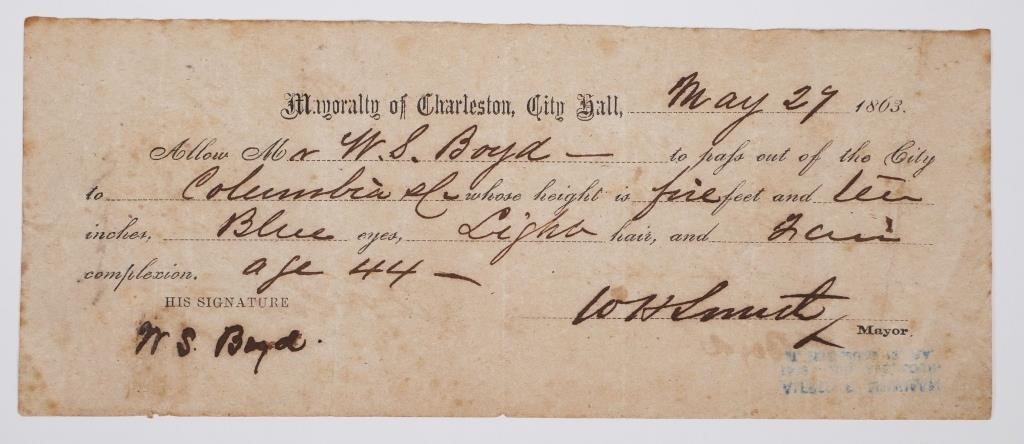 Mayoralty of Charleston, City Hall, May 27 1863.
Allow Mr W. S. Boyd — to pass out of the City
to Columbia &c whose height is five feet and ten
inches, Blue eyes, Light hair, and Fair
complexion. age 44 —
HIS SIGNATURE
W H Smith
Mayor.
W S. Boyd.